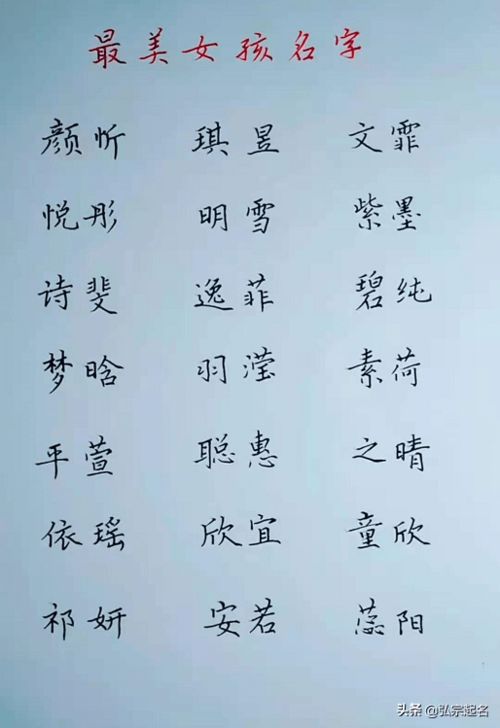 最美女孩名字
颜忻 琪昱 文霏
悦彤 明雪 紫墨
诗斐 逸菲 碧纯
梦晗 羽滢 素荷
平萱 聪惠 之晴
依瑶 欣宜 童欣
祁妍 安若 蕊阳
头条 @弘宗起名